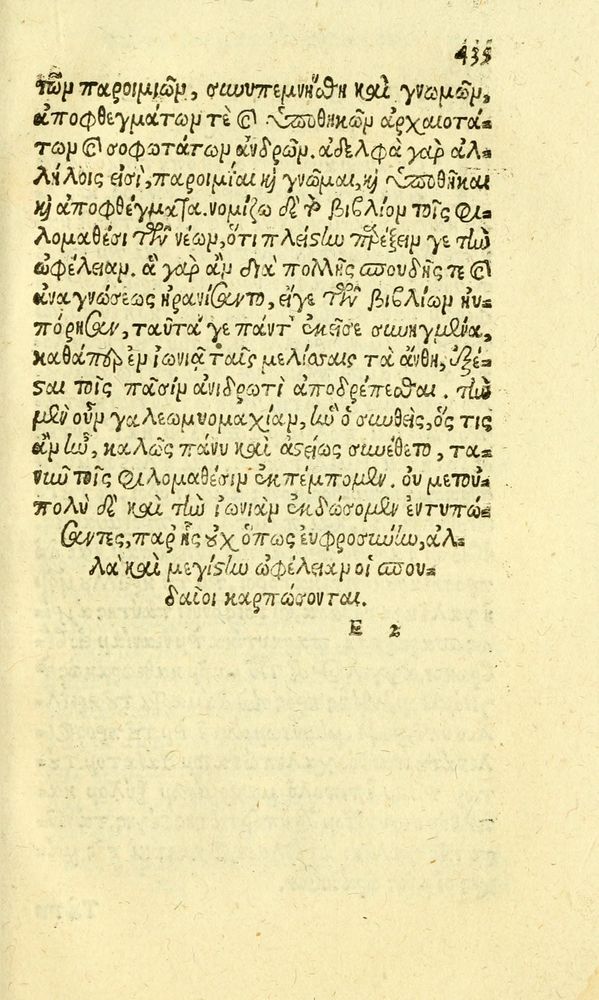 435
τῶν παροιμιῶν, συνυπεμνήσθη καὶ γνωμῶν,
ἀποφθεγμάτων τὲ καὶ ὑποθηκῶν ἀρχαιοτά-
των καὶ σοφωτάτων ἀνδρῶν. ἀδελφὰ γὰρ ἀλ-
λήλοις εἰσὶ, παροιμίαι καὶ γνῶμαι, καὶ ὑποθῆκαι
καὶ ἀποφθέγματα. νομίζω δὲ τὸ βιβλίον τοῖς φι-
λομαθέσι τῶν νέων, ὅτι πλείστην παρέξειν γε τὴν
ὠφέλειαν. ἃ γὰρ ἂν διὰ πολλῆς σπουδῆς τε καὶ
ἀναγνώσεως ἠρανίσαντο, εἴγε τῶν βιβλίων ηὐ-
πόρησαν, ταῦτά γε πάντ' ἐκεῖσε συνηγμένα,
καθάπερ ἐν ἰωνιᾷ ταῖς μελίσσαις τὰ ἄνθη, ἐξέ-
σται τοῖς πᾶσιν ἀνιδρωτὶ ἀποδρέπεσθαι. τὴν
μὲν οὖν γαλεωμυομαχίαν, ἣν ὁ συνθεὶς, ὅς τις
ἂν ἦν, καλῶς πάνυ καὶ ἀστείως συνέθετο, τα-
νῦν τοῖς φιλομαθέσιν ἐκπέμπομεν. οὐ μετοὺ
πολὺ δὲ καὶ τὴν ἰωνιὰν ἐκδώσομεν ἐντυπώ-
σαντες, παρ' ἧς οὐχ ὅπως εὐφροσύνην, ἀλ-
λὰ καὶ μεγίστην ὠφέλειαν οἱ σπου-
δαῖοι καρπώσονται.
E 2